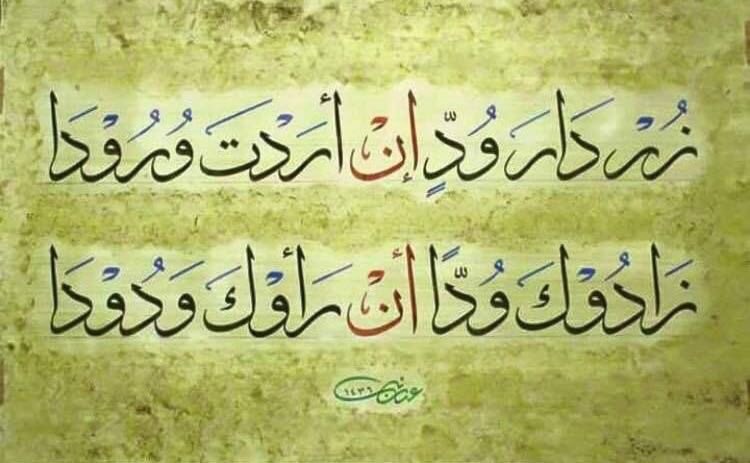 زُرْ دَارَ وُدٍّ إِنْ أَرَدْتَ وُرُوْدَا
زَادُوْكَ وُدًّا أَنْ رَأَوْكَ وَدُوْدَا
١٤٣٦